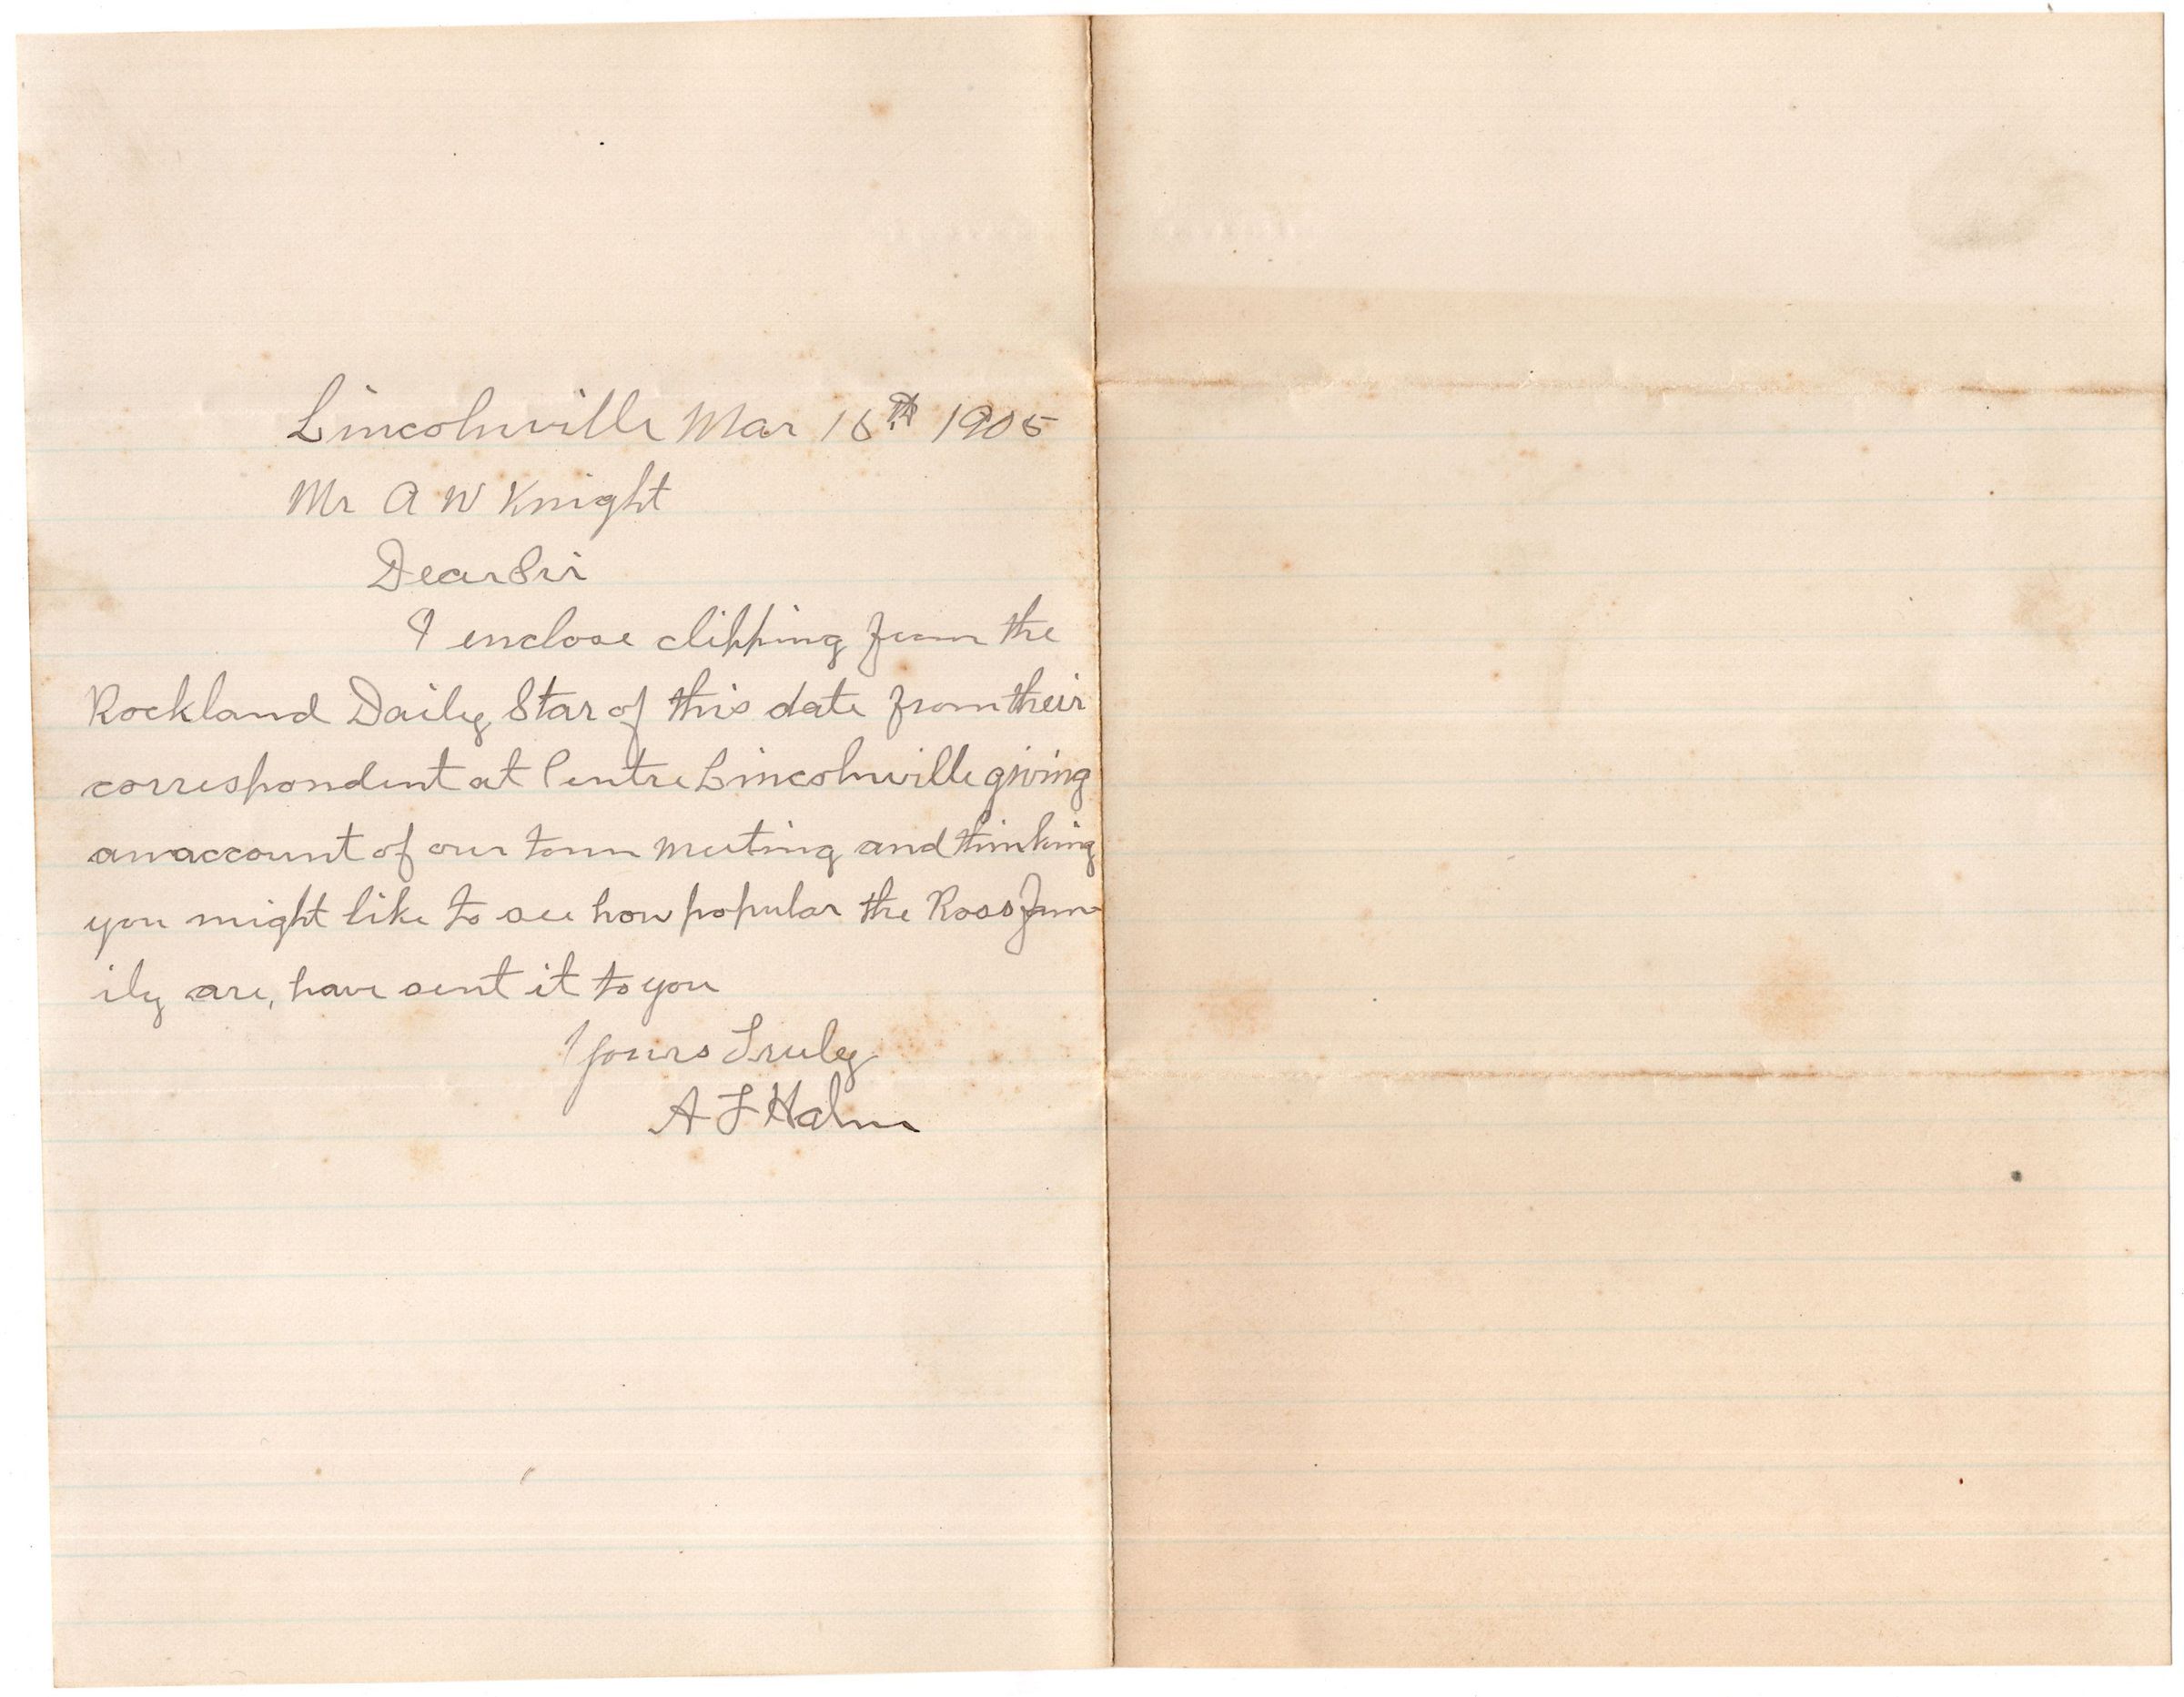 Lincolnville Mar 16th 1905
Mr A W Knight
Dear Sir
I enclose clipping from the
Rockland Daily Star of this date from their
correspondent at Centre Lincolnville giving
an account of our town meeting and thinking
you might like to see how popular the Ross fam
ily are, have sent it to you
Yours Truly
A